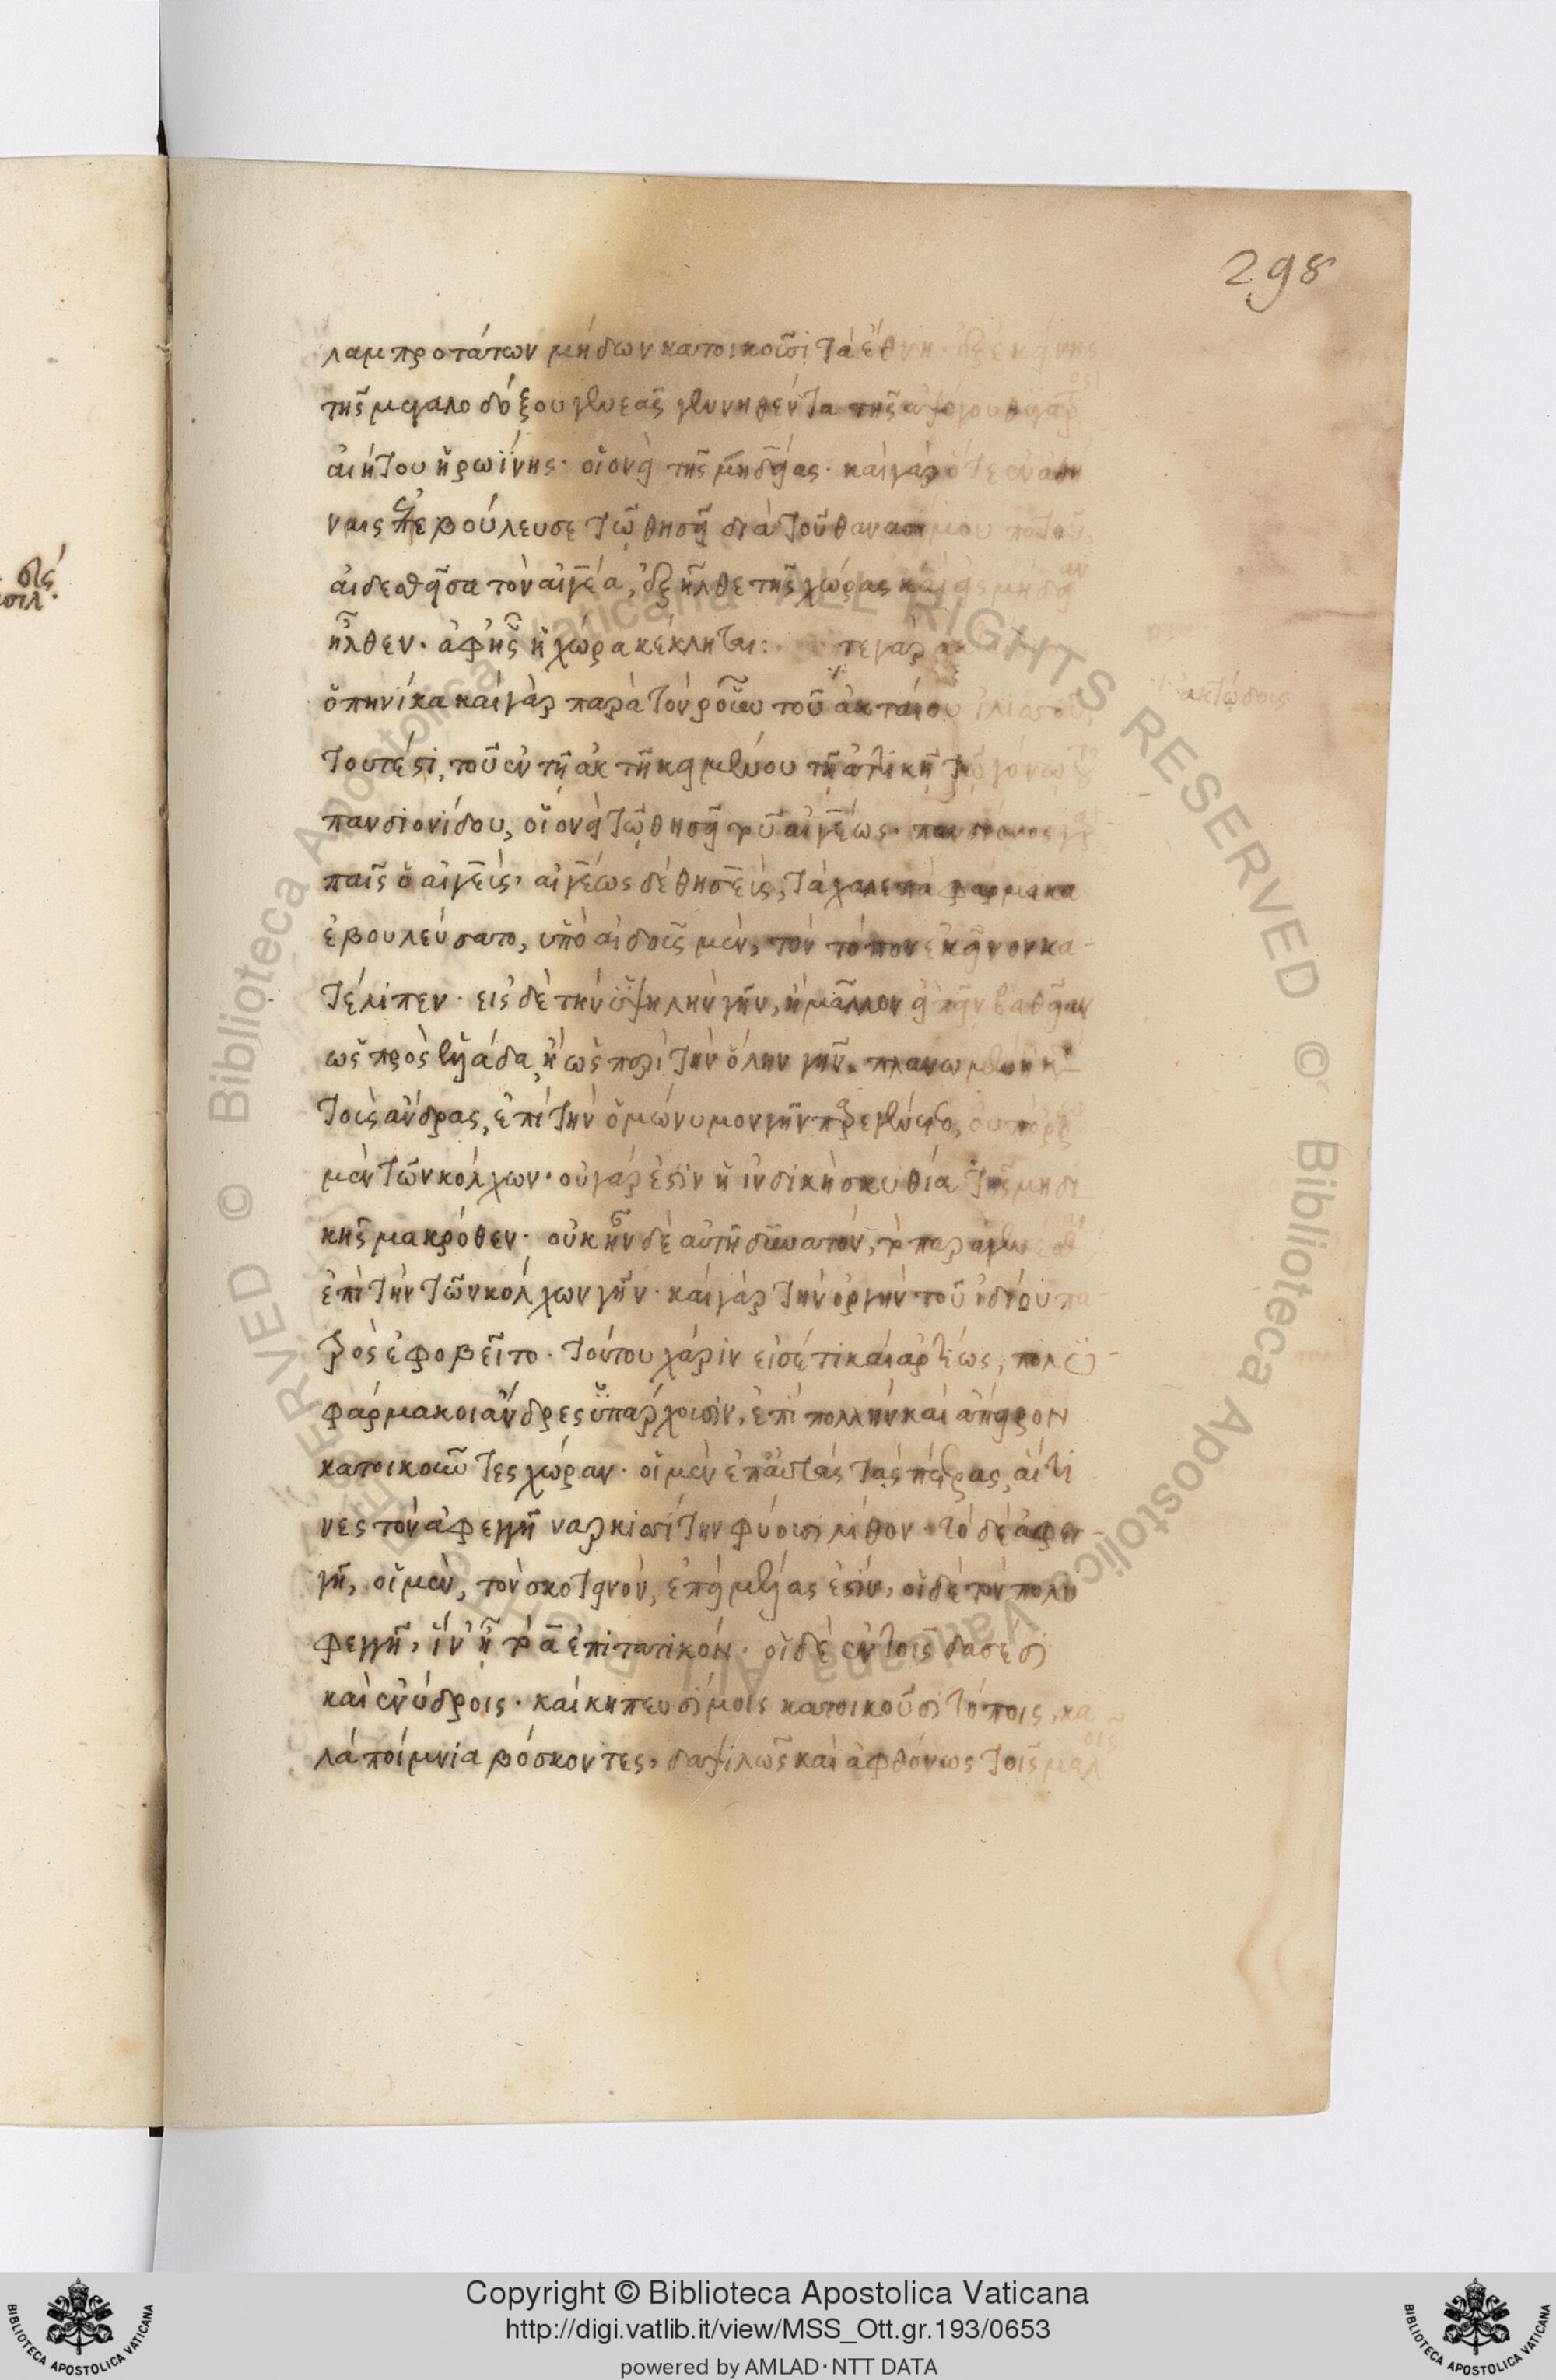 298
λαμπροτάτων μήδων κατοικοῦσι τὰ ἔθνη· ἐξ ἐκείνης
τῆς μεγαλοδόξου γενεᾶς γεννηθέντα τῆς
αἰήτου ἡρωίνης· οἱονεὶ τῆς μηδείας· καὶ γὰρ ὅτε ἐν ἀθή
ναις ἐπεβούλευσε τῷ θησεῖ διὰ τοῦ θανασίμου ποτοῦ,
αἰδεσθεῖσα τὸν αἰγέα, ἐξῆλθε τῆς χώρας καὶ εἰς μηδείαν
ἦλθεν· ἀφ' ἧς ἡ χώρα κέκληται:· τε γὰρ
ὁπηνίκα καὶ γὰρ παρὰ τὸν ῥοῦν τοῦ ἀκταίου ἰλισσοῦ,
τουτέστι, τοῦ ἐν τῇ ἀκτῇ κειμένου τῇ ἀττικῇ τῷ γόνῳ τοῦ
πανδιονίδου, οἱονεὶ τῷ θησεῖ τοῦ αἰγέως· πανδίονος γὰρ
παῖς ὁ αἰγεύς· αἰγέως δὲ θησεύς, τὰ χαλεπὰ φάρμακα
ἐβουλεύσατο, ὑπὸ αἰδοῦς μὲν, τὸν τόπον ἐκεῖνον κα-
τέλιπεν· εἰς δὲ τὴν ὑψηλὴν γῆν, ἢ μᾶλλον εἰπεῖν βαθεῖαν
ὡς πρὸς ἑλλάδα, ἢ ὡς περὶ τὴν ὅλην γῆν πλανωμένη
τοὺς ἄνδρας, ἐπὶ τὴν ὁμώνυμον γῆν παρεγένετο, οὐ πόρρω
μὲν τῶν κόλχων· οὐ γάρ ἐστιν ἡ ἰνδικὴ σκυθία τῆς μηδι
κῆς μακρόθεν· οὐκ ἦν δὲ αὐτῇ δυνατὸν, τὸ παραγενέσθαι
ἐπὶ τὴν τῶν κόλχων γῆν· καὶ γὰρ τὴν ὀργὴν τοῦ ἰδίου πα-
τρὸς ἐφοβεῖτο· τούτου χάριν εἰσέτι καὶ ἀρτίως, πολυ-
φάρμακοι ἄνδρες ὑπάρχουσιν, ἐπὶ πολλὴν καὶ ἄπειρον
κατοικοῦντες χώραν· οἱ μὲν ἐπ' αὐτὰς τὰς πέτρας, αἵτι
νες τὸν ἀφεγγῆ ναρκισσίτην φύουσι λίθον· τὸ δὲ ἀφεγ-
γῆ, οἱ μὲν, τὸν σκοτεινὸν, ἐπεὶ μέλας ἐστίν, οἱ δὲ τὸν πολυ
φεγγῆ, ἵν' ᾖ τὸ ᾱ ἐπιτατικόν· οἱ δὲ ἐν τοῖς δασέσι
καὶ ἐνύδροις· καὶ κηπευσίμοις κατοικοῦσι τόποις, κα
λὰ ποίμνια βόσκοντες, δαψιλῶς καὶ ἀφθόνως τοῖς μαλ
Copyright © Biblioteca Apostolica Vaticana
http://digi.vatlib.it/view/MSS_Ott.gr.193/0653
powered by AMLAD·NTT DATA